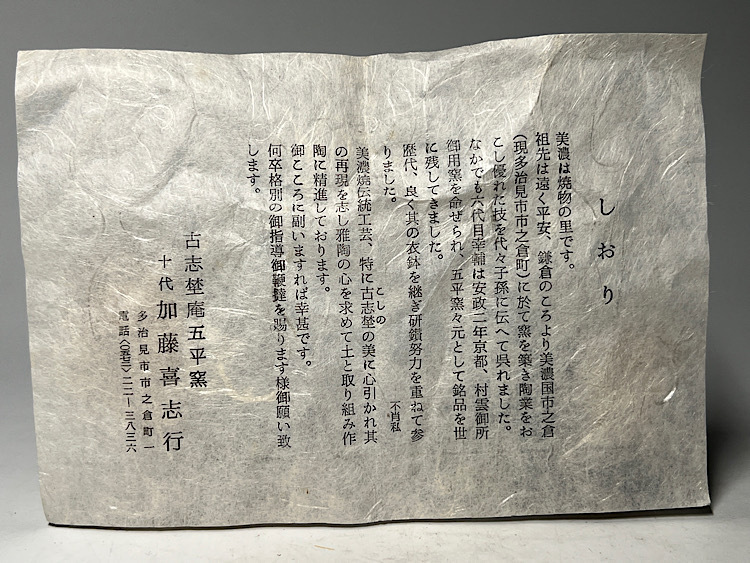 しおり
美濃は焼物の里です。
祖先は遠く平安、鎌倉のころより美濃国市之倉
(現多治見市市之倉町)に於て窯を築き陶業をお
こし優れた技を代々子孫に伝へて呉れました。
なかでも六代目幸輔は安政二年京都、村雲御所
御用窯を命ぜられ、五平窯々元として銘品を世
に残してきました。
歴代、良く其の衣鉢を継ぎ研鑽努力を重ねて参
りました。
不肖私
美濃焼伝統工芸、特に古志埜の美に心引かれ其
こしの
の再現を志し雅陶の心を求めて土と取り組み作
陶に精進しております。
御こころに副いますれば幸甚です。
何卒格別の御指導御鞭撻を賜ります様御願い致
します。
古志埜庵五平窯
十代 加藤喜志行
多治見市市之倉町一
電話〈〉二二ー三八三六